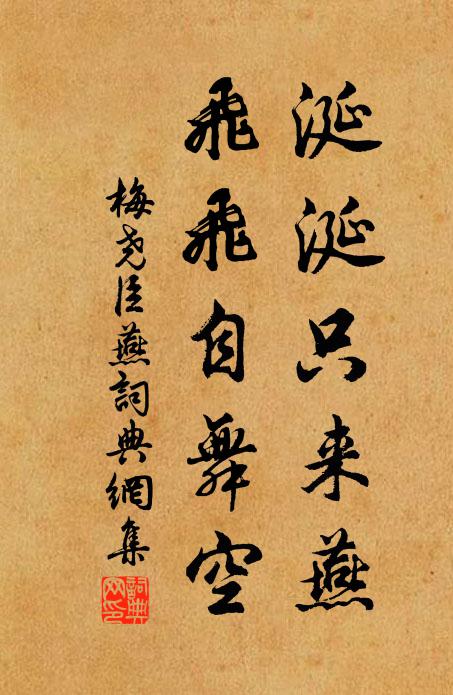 涎涎只来燕
飛飛自舞空
梅尧臣燕詞典網集
詞典网印